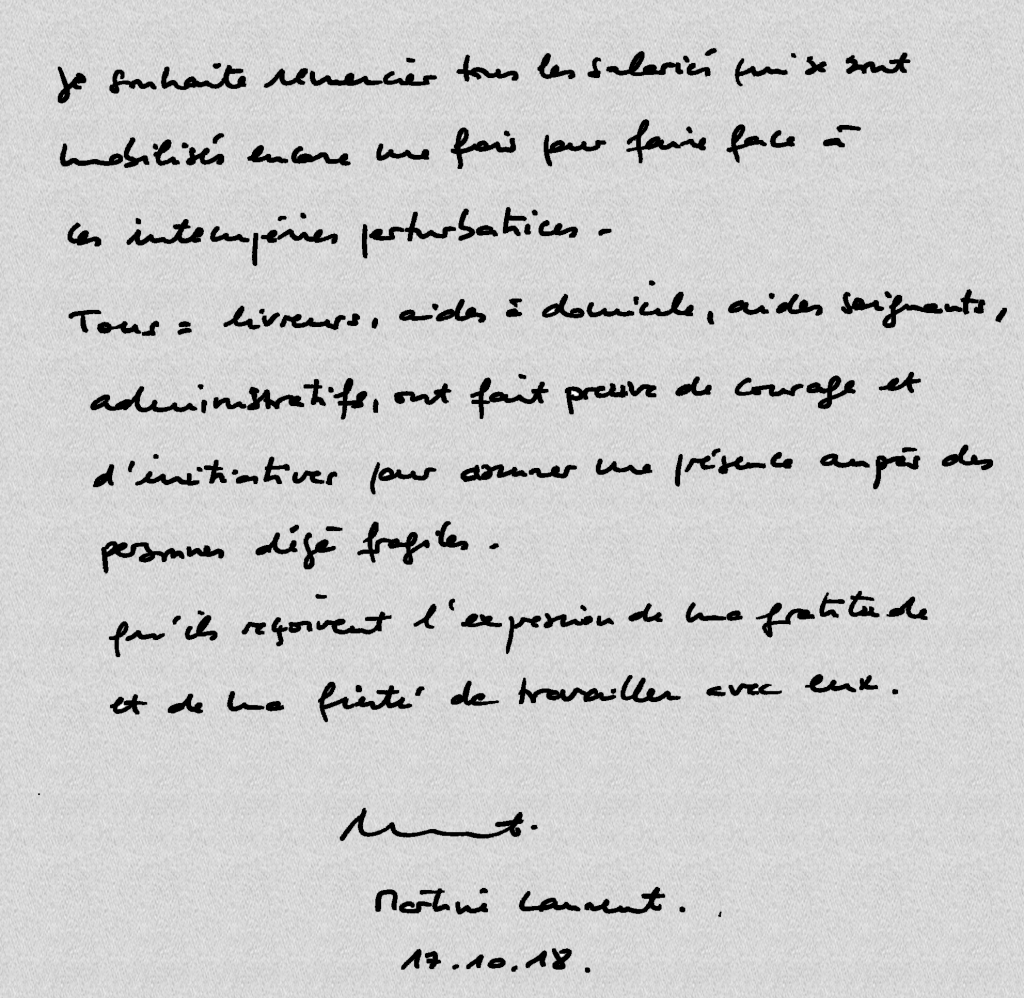 Je souhaite remercier tous les salariés qui se sont
mobilisés encore une fois pour faire face à
ces intempéries perturbatrices.
Tous : livreurs, aides à domicile, aides soignants,
administratifs, ont fait preuve de courage et
d'initiatives pour assurer une présence auprès des
personnes déjà fragiles.
qu'ils reçoivent l'expression de ma gratitude
et de ma fierté de travailler avec eux.
Martine Laurent.
17.10.18.